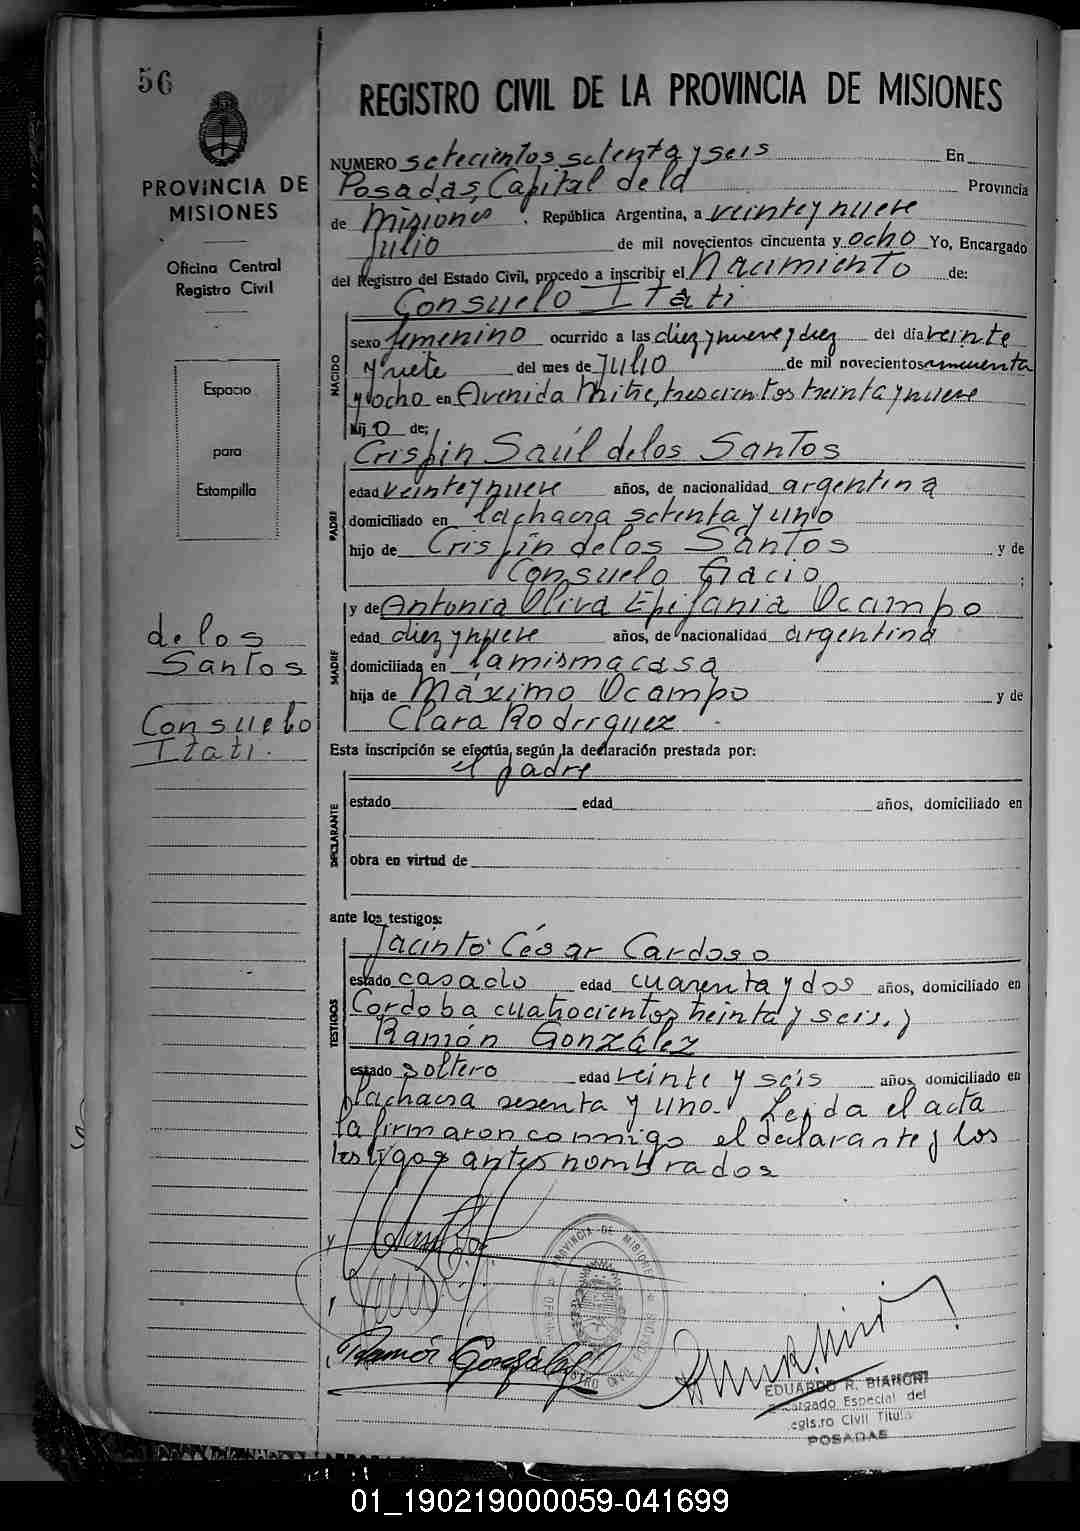 56
PROVINCIA DE
MISIONES
Oficina Central
Registro Civil
Espacio
para
Estampilla
de los
Santos
Consuelo
Itatí.
REGISTRO CIVIL DE LA PROVINCIA DE MISIONES
NUMERO setecientos setenta y seis En
Posadas, Capital de la Provincia
de Misiones. República Argentina, a veinte y nueve
Julio de mil novecientos cincuenta y ocho Yo, Encargado
del Registro del Estado Civil, procedo a inscribir el Nacimiento de:
Consuelo Itatí
NACIDO
sexo femenino ocurrido a las diez y nueve y diez del día veinte
y siete del mes de Julio de mil novecientos cincuenta
y ocho en Avenida Mitre, trescientos treinta y nueve
hija de;
Crispin Saúl de los Santos
PADRE
edad veinte y nueve años, de nacionalidad argentina
domiciliado en la chacra setenta y uno
hijo de Crispín de los Santos y de
Consuelo ;
MADRE
y de Antonia Oliva Epifania Ocampo
edad diez y nueve años, de nacionalidad argentina
domiciliada en la misma casa
hija de Máximo Ocampo y de
Clara Rodríguez.
Esta inscripción se efectúa según la declaración prestada por:
el padre
DECLARANTE
estado edad años, domiciliado en
obra en virtud de
ante los testigos:
TESTIGOS
Jacinto César Cardoso
estado casado edad cuarenta y dos años, domiciliado en
Cordoba cuatrocientos treinta y seis, y
Ramón González
estado soltero edad veinte y seis años, domiciliado en
la chacra sesenta y uno. Leida el acta
la firmaron conmigo el declarante y los
testigos antes nombrados
Ramón González
PROVINCIA DE MISIONES
REGISTRO CIVIL
EDUARDO R. BIANCHI
Encargado Especial del
Registro Civil Titular
POSADAS
01_190219000059-041699